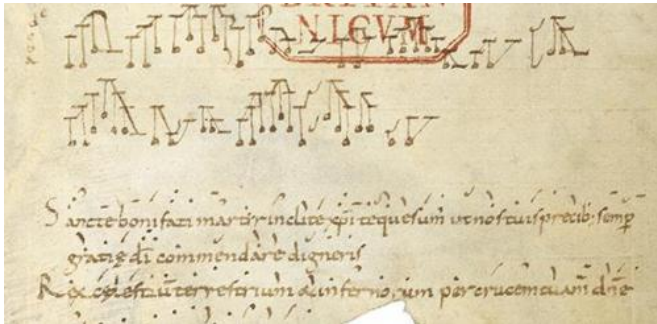 BRITAN
NICVM
Sancte bonifati martir inclite xpi te quesum ut nos tuis precib; semp
gratię di commendare digneris
Rex cęlestiu terrestrium & infernorum per crucem tuam dne